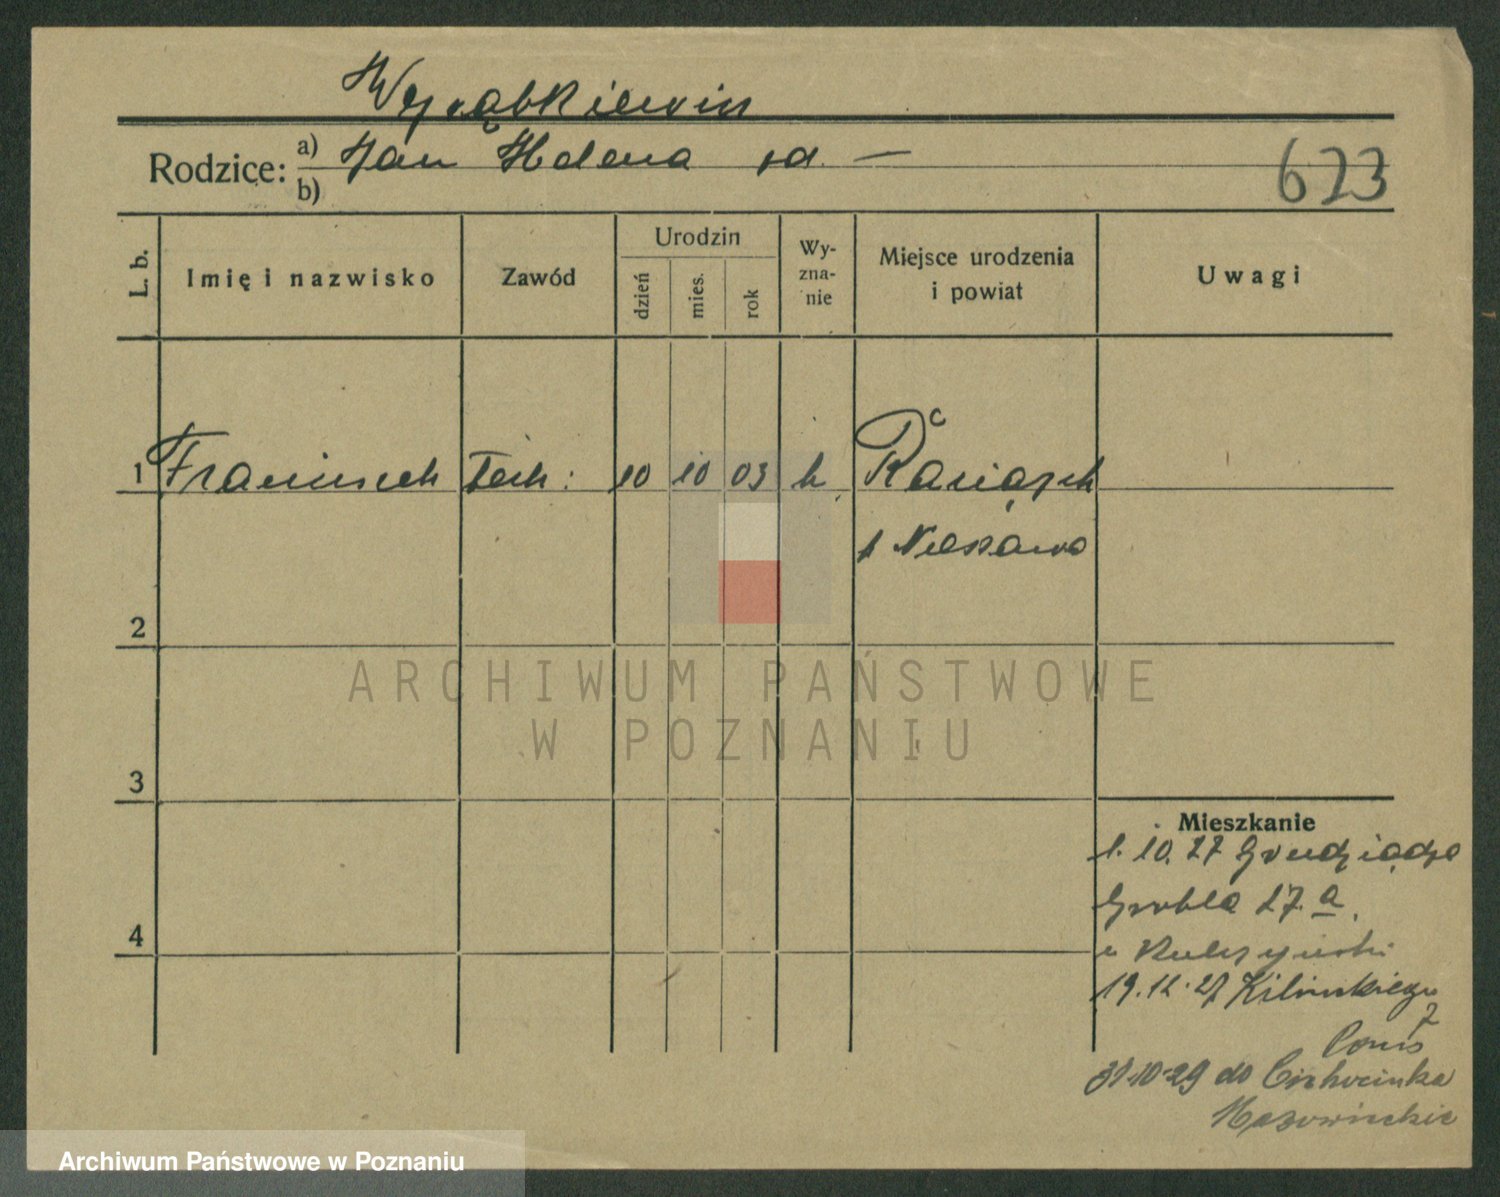 Wyrąbkiewicz
Rodzice: a) Jan Helena zd. —
b)
673
L. b.
Imię i nazwisko
Zawód
Urodzin
dzień
mies.
rok
Wy-
zna-
nie
Miejsce urodzenia
i powiat
Uwagi
1 Franciszek Tech: 10 10 03 k Raciążek
p Nieszawa
2
ARCHIWUM PAŃSTWOWE
W POZNANIU
3
Mieszkanie
1.10.27 Grudziądz
Grobla 27.a
4
u
19.12.27 Kilińskiego
7
31.10.29 do Ciechocinka
Archiwum Państwowe w Poznaniu